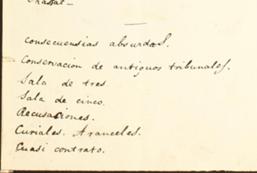 consecuensias absurdas.
Conservacion de antiguos tribunales.
Sala de tres
Sala de cinco.
Recusaciones.
Curiales. Aranceles.
Cuasi contrato.